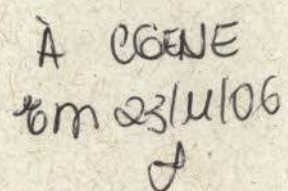 À CGENE
em 23/11/06